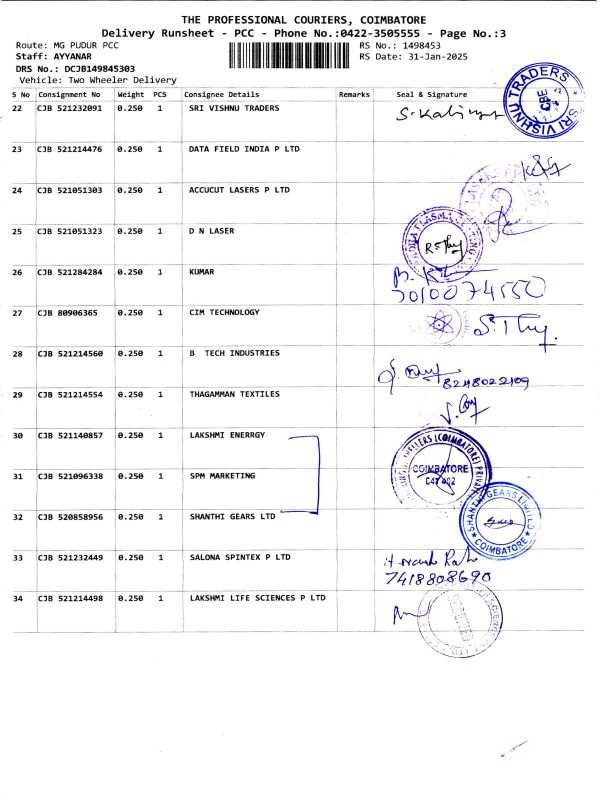 THE PROFESSIONAL COURIERS, COIMBATORE
Delivery Runsheet - PCC - Phone No.:0422-3505555 - Page No.:3
Route: MG PUDUR PCC RS No.: 1498453
Staff: AYYANAR RS Date: 31-Jan-2025
DRS No.: DCJB149845303
Vehicle: Two Wheeler Delivery
S No Consignment No Weight PCS Consignee Details Remarks Seal & Signature
22 CJB 521232091 0.250 1 SRI VISHNU TRADERS
SRI VISHNU TRADERS CBE
23 CJB 521214476 0.250 1 DATA FIELD INDIA P LTD
24 CJB 521051303 0.250 1 ACCUCUT LASERS P LTD
25 CJB 521051323 0.250 1 D N LASER
26 CJB 521284284 0.250 1 KUMAR
27 CJB 80906365 0.250 1 CIM TECHNOLOGY
28 CJB 521214560 0.250 1 B TECH INDUSTRIES
8248022109
29 CJB 521214554 0.250 1 THAGAMMAN TEXTILES
30 CJB 521140857 0.250 1 LAKSHMI ENERRGY
(COIMBATORE)
31 CJB 521096338 0.250 1 SPM MARKETING
COIMBATORE
32 CJB 520858956 0.250 1 SHANTHI GEARS LTD
SHANTHI GEARS LIMITED COIMBATORE
33 CJB 521232449 0.250 1 SALONA SPINTEX P LTD
7418808690
34 CJB 521214498 0.250 1 LAKSHMI LIFE SCIENCES P LTD